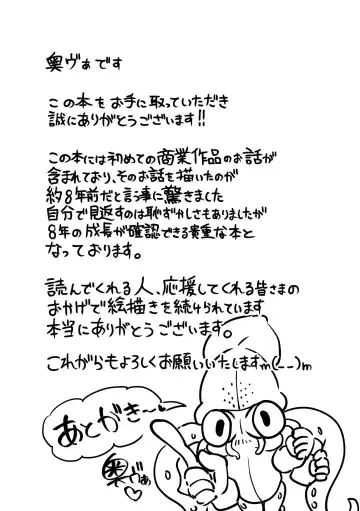 奥ヴぁです
この本をお手に取っていただき
誠にありがとうございます!!
この本には初めての商業作品のお話が
含まれており、そのお話を描いたのが
約8年前だと言う事に驚きました
自分で見返すのは恥ずかしさもありましたが
8年の成長が確認できる貴重な本と
なっております。
読んでくれる人、応援してくれる皆さまの
おかげで絵描きを続けられています
本当にありがとうございます。
これからもよろしくお願いいたしますm(__)m
あとがき〜♥
奥ヴぁ♡